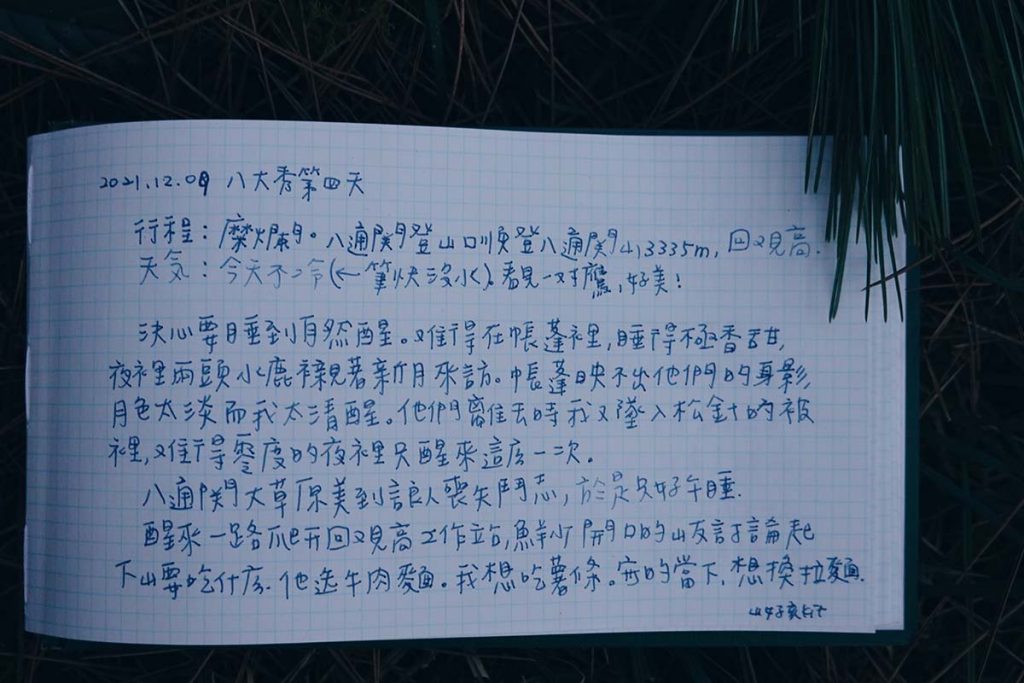 2021.12.09 八大秀第四天
行程：糜爛。八通關登山口順登八通關山3335m, 回觀高.
天気：今天不冷(←筆快沒水)。看見一對鷹,好美!
決心要睡到自然醒。難得在帳蓬裡,睡得極香甜,
夜裡兩頭水鹿襯著新月來訪。帳蓬映不出他們的身影,
月色太淡而我太清醒。他們離去時我又墜入松針的被
裡,難得零度的夜裡只醒來這広一次。
八通関大草原美到讓人喪失鬥志,於是只好午睡.
醒來一路爬升回觀高工作站,鮮少開口的山友討論起
下山要吃什広. 他選牛肉麵。我想吃薯條。寫的當下,想換拉麵.
山女孩Kit